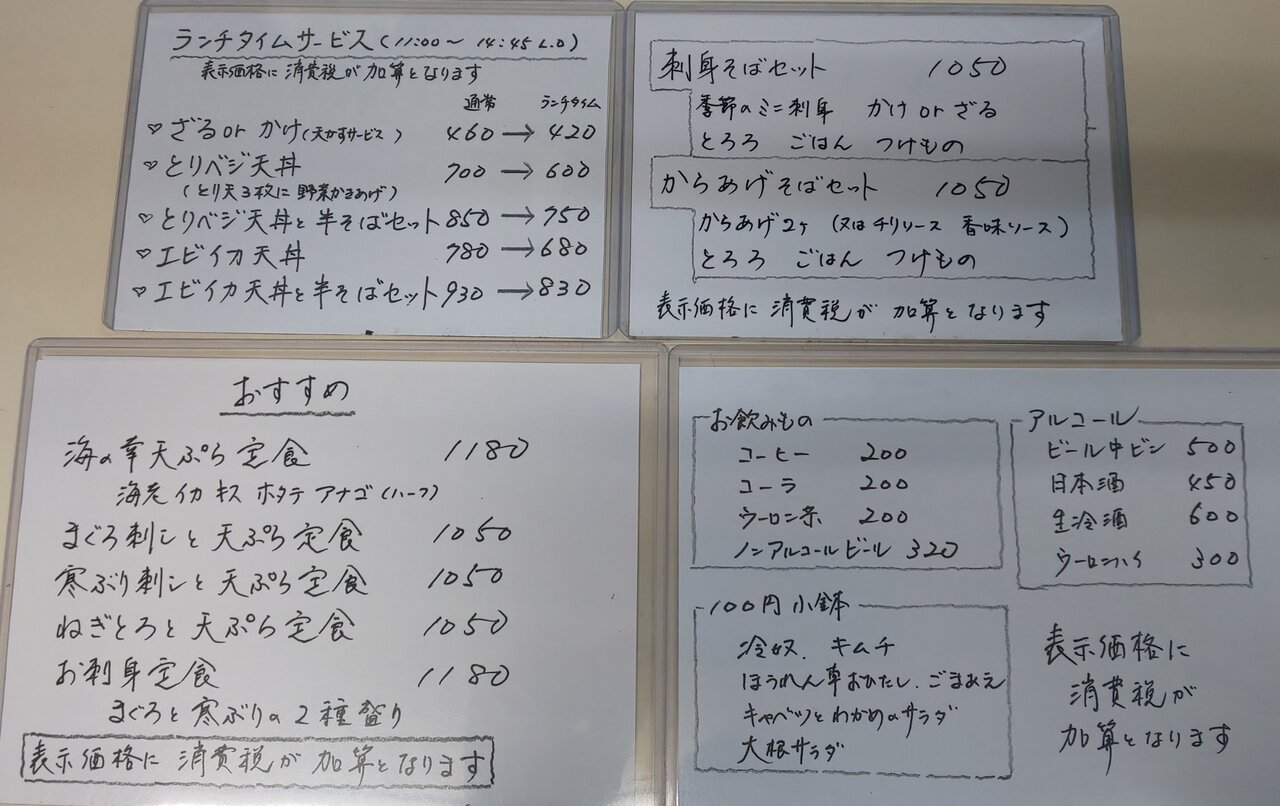 ランチタイムサービス(11:00～14:45 L.O)
表示価格に消費税が加算となります
通常 ランチタイム
♡ざるor かけ(天かすサービス) 460→420
♡とりベジ天丼 700→600
(とり天3枚に野菜かきあげ)
♡とりベジ天丼と半そばセット 850→750
♡エビイカ天丼 780→680
♡エビイカ天丼と半そばセット 930→830
刺身そばセット 1050
季節のミニ刺身 かけ or ざる
とろろ ごはん つけもの
からあげそばセット 1050
からあげ2ヶ (又はチリソース 香味ソース)
とろろ ごはん つけもの
表示価格に消費税が加算となります
おすすめ
海の幸天ぷら定食 1180
海老 イカ キス ホタテ アナゴ(ハーフ)
まぐろ刺しと天ぷら定食 1050
寒ぶり刺しと天ぷら定食 1050
ねぎとろと天ぷら定食 1050
お刺身定食 1180
まぐろと寒ぶりの2種盛り
表示価格に消費税が加算となります
お飲みもの
コーヒー 200
コーラ 200
ウーロン茶 200
ノンアルコールビール 320
アルコール
ビール中ビン 500
日本酒 450
生冷酒 600
ウーロンハイ 300
100円小鉢
冷奴、キムチ
ほうれん草おひたし、ごまあえ
キャベツとわかめのサラダ
大根サラダ
表示価格に
消費税が
加算となります